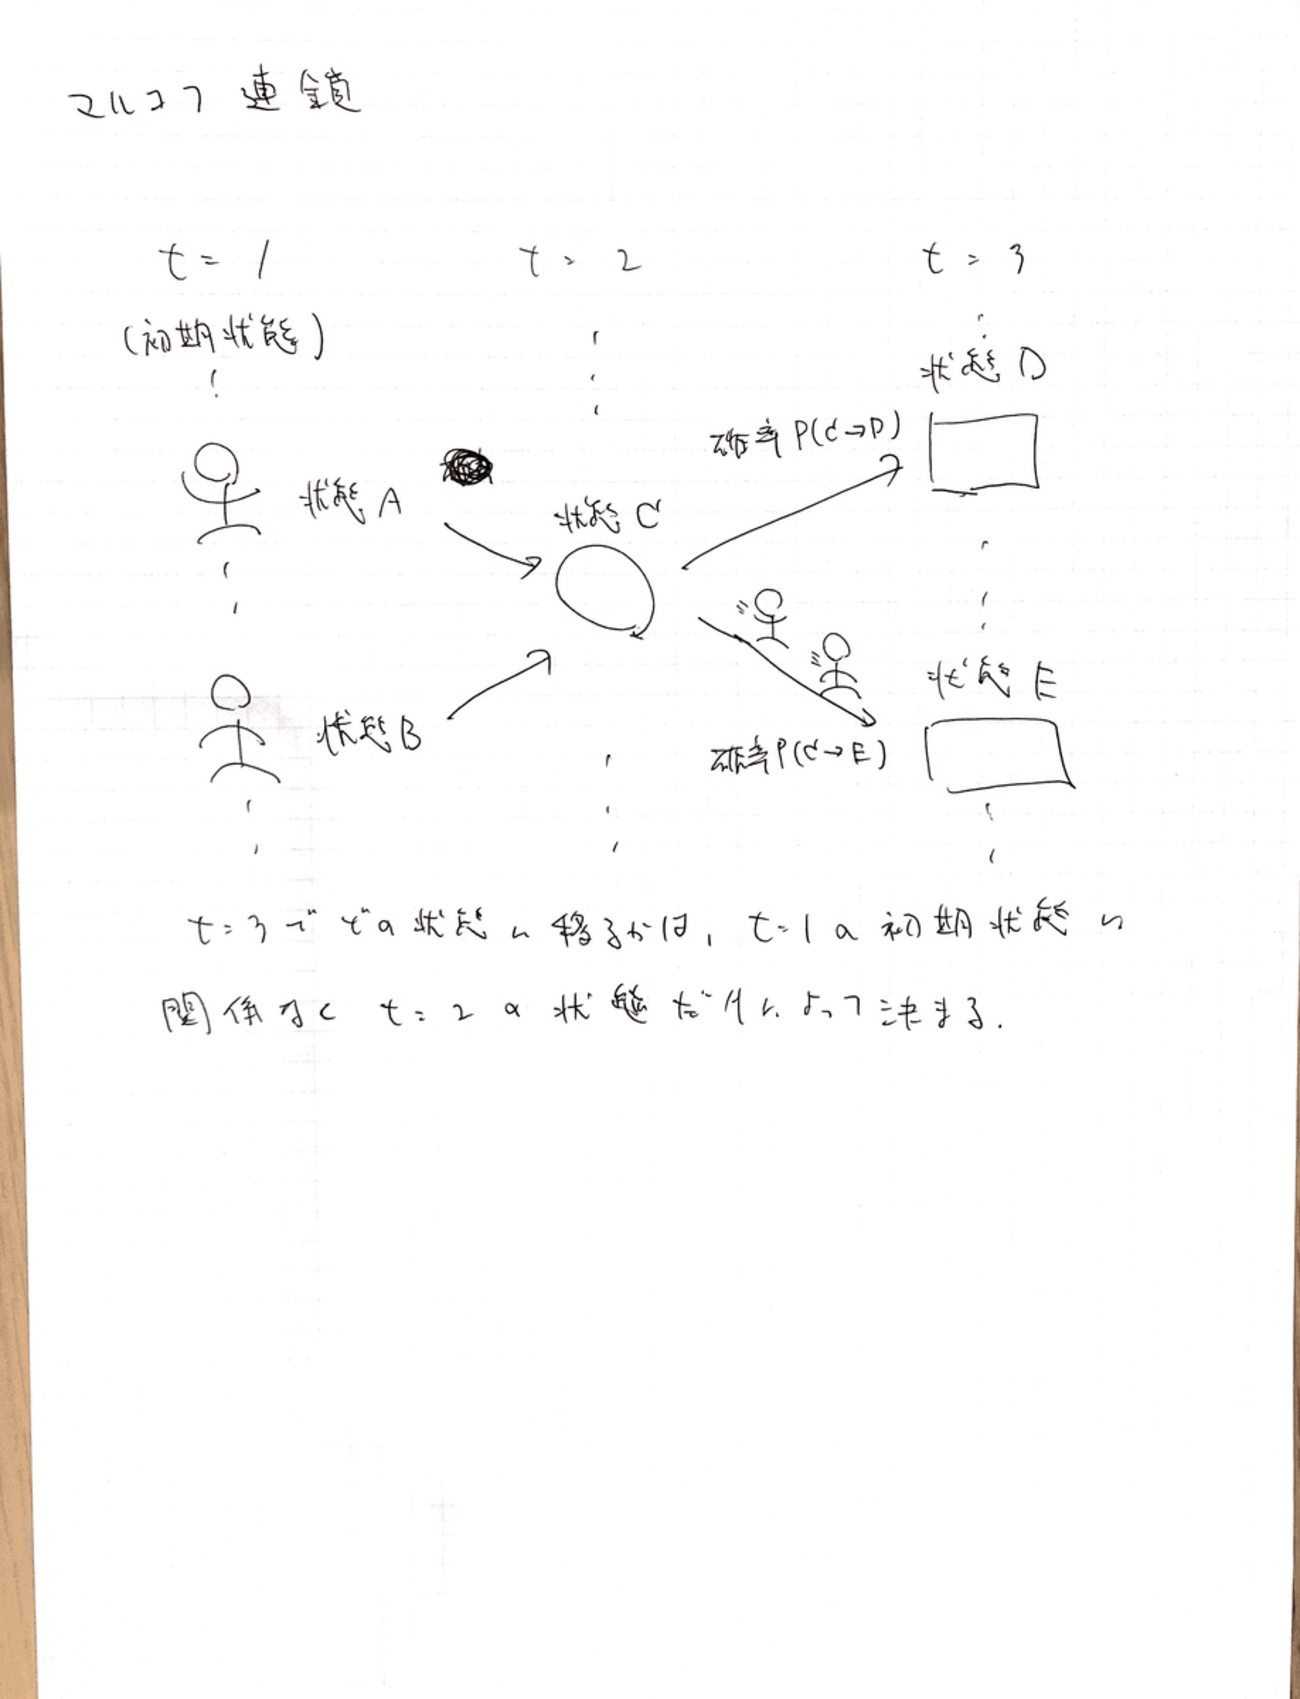 マルコフ 連鎖
t = 1
t = 2
t = 3
(初期状態)
状態 D
確率 P(C→D)
状態 A
状態 C
状態 E
状態 B
確率 P(C→E)
t=3で どの 状態 に 移るかは, t=1の 初期 状態 に
関係なく t=2 の 状態だけによって決まる.